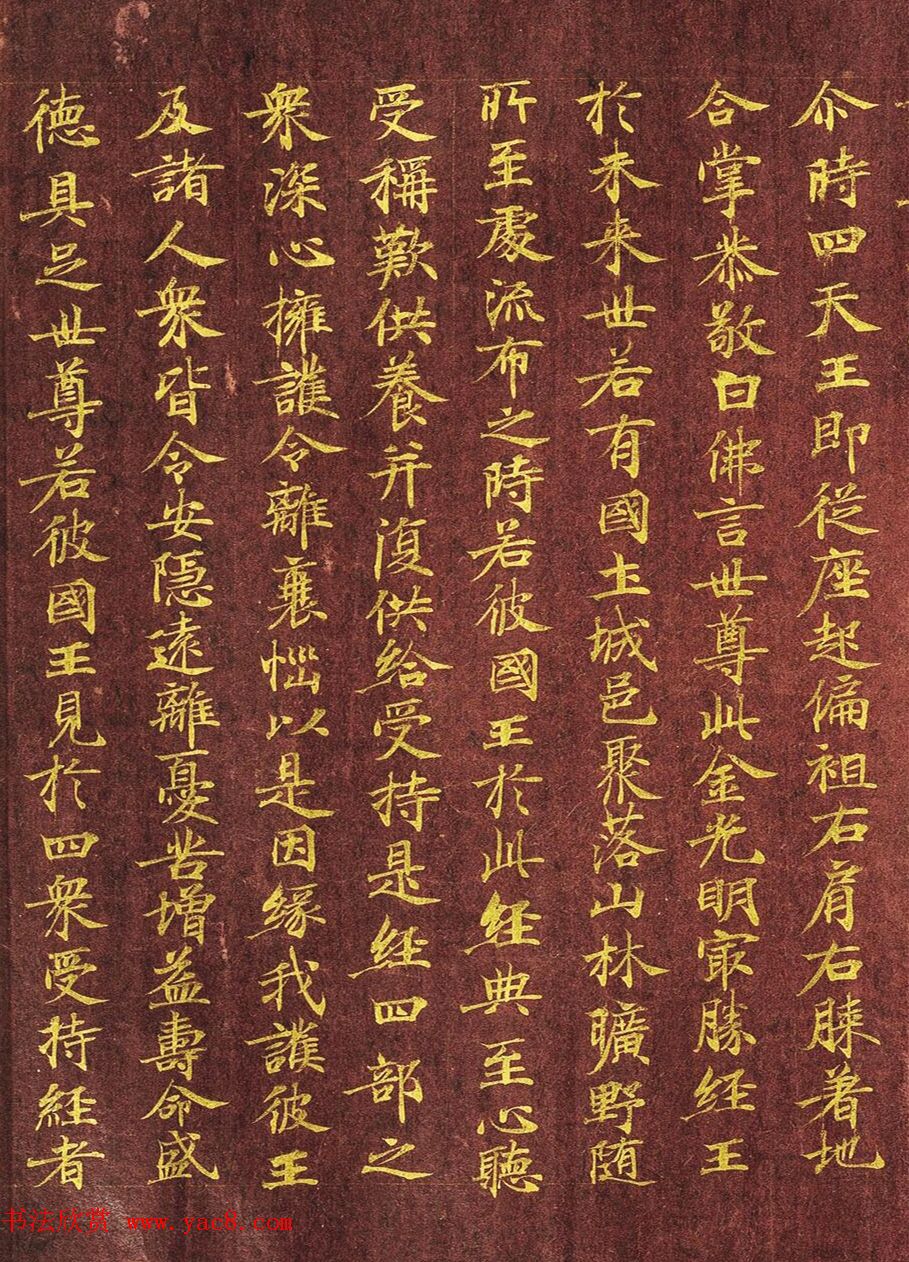 尒時四天王即從座起偏袒右肩右膝著地
合掌恭敬白佛言世尊此金光明冣勝経王
於未来世若有國土城邑聚落山林曠野随
所至處流布之時若彼國王於此経典至心聽
受稱歎供養并復供給受持是経四部之
衆深心擁護令離衰惱以是因緣我護彼王
及諸人衆皆令安隠遠離憂苦增益壽命盛
徳具足世尊若彼國王見於四衆受持経者
书法欣赏 www.yac8.com